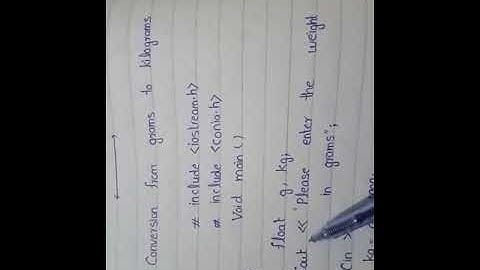 Conversion from grams to kilograms
# include <iostream.h>
# include <conio.h>
Void main ()
float g, kg;
Cout << "Please enter the weight
in grams";
Cin >
kg =